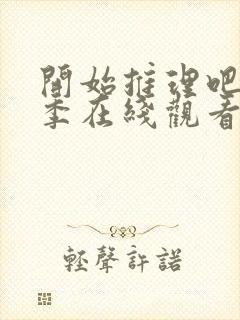 開始推理吧
季在綫觀看
輕聲許諾